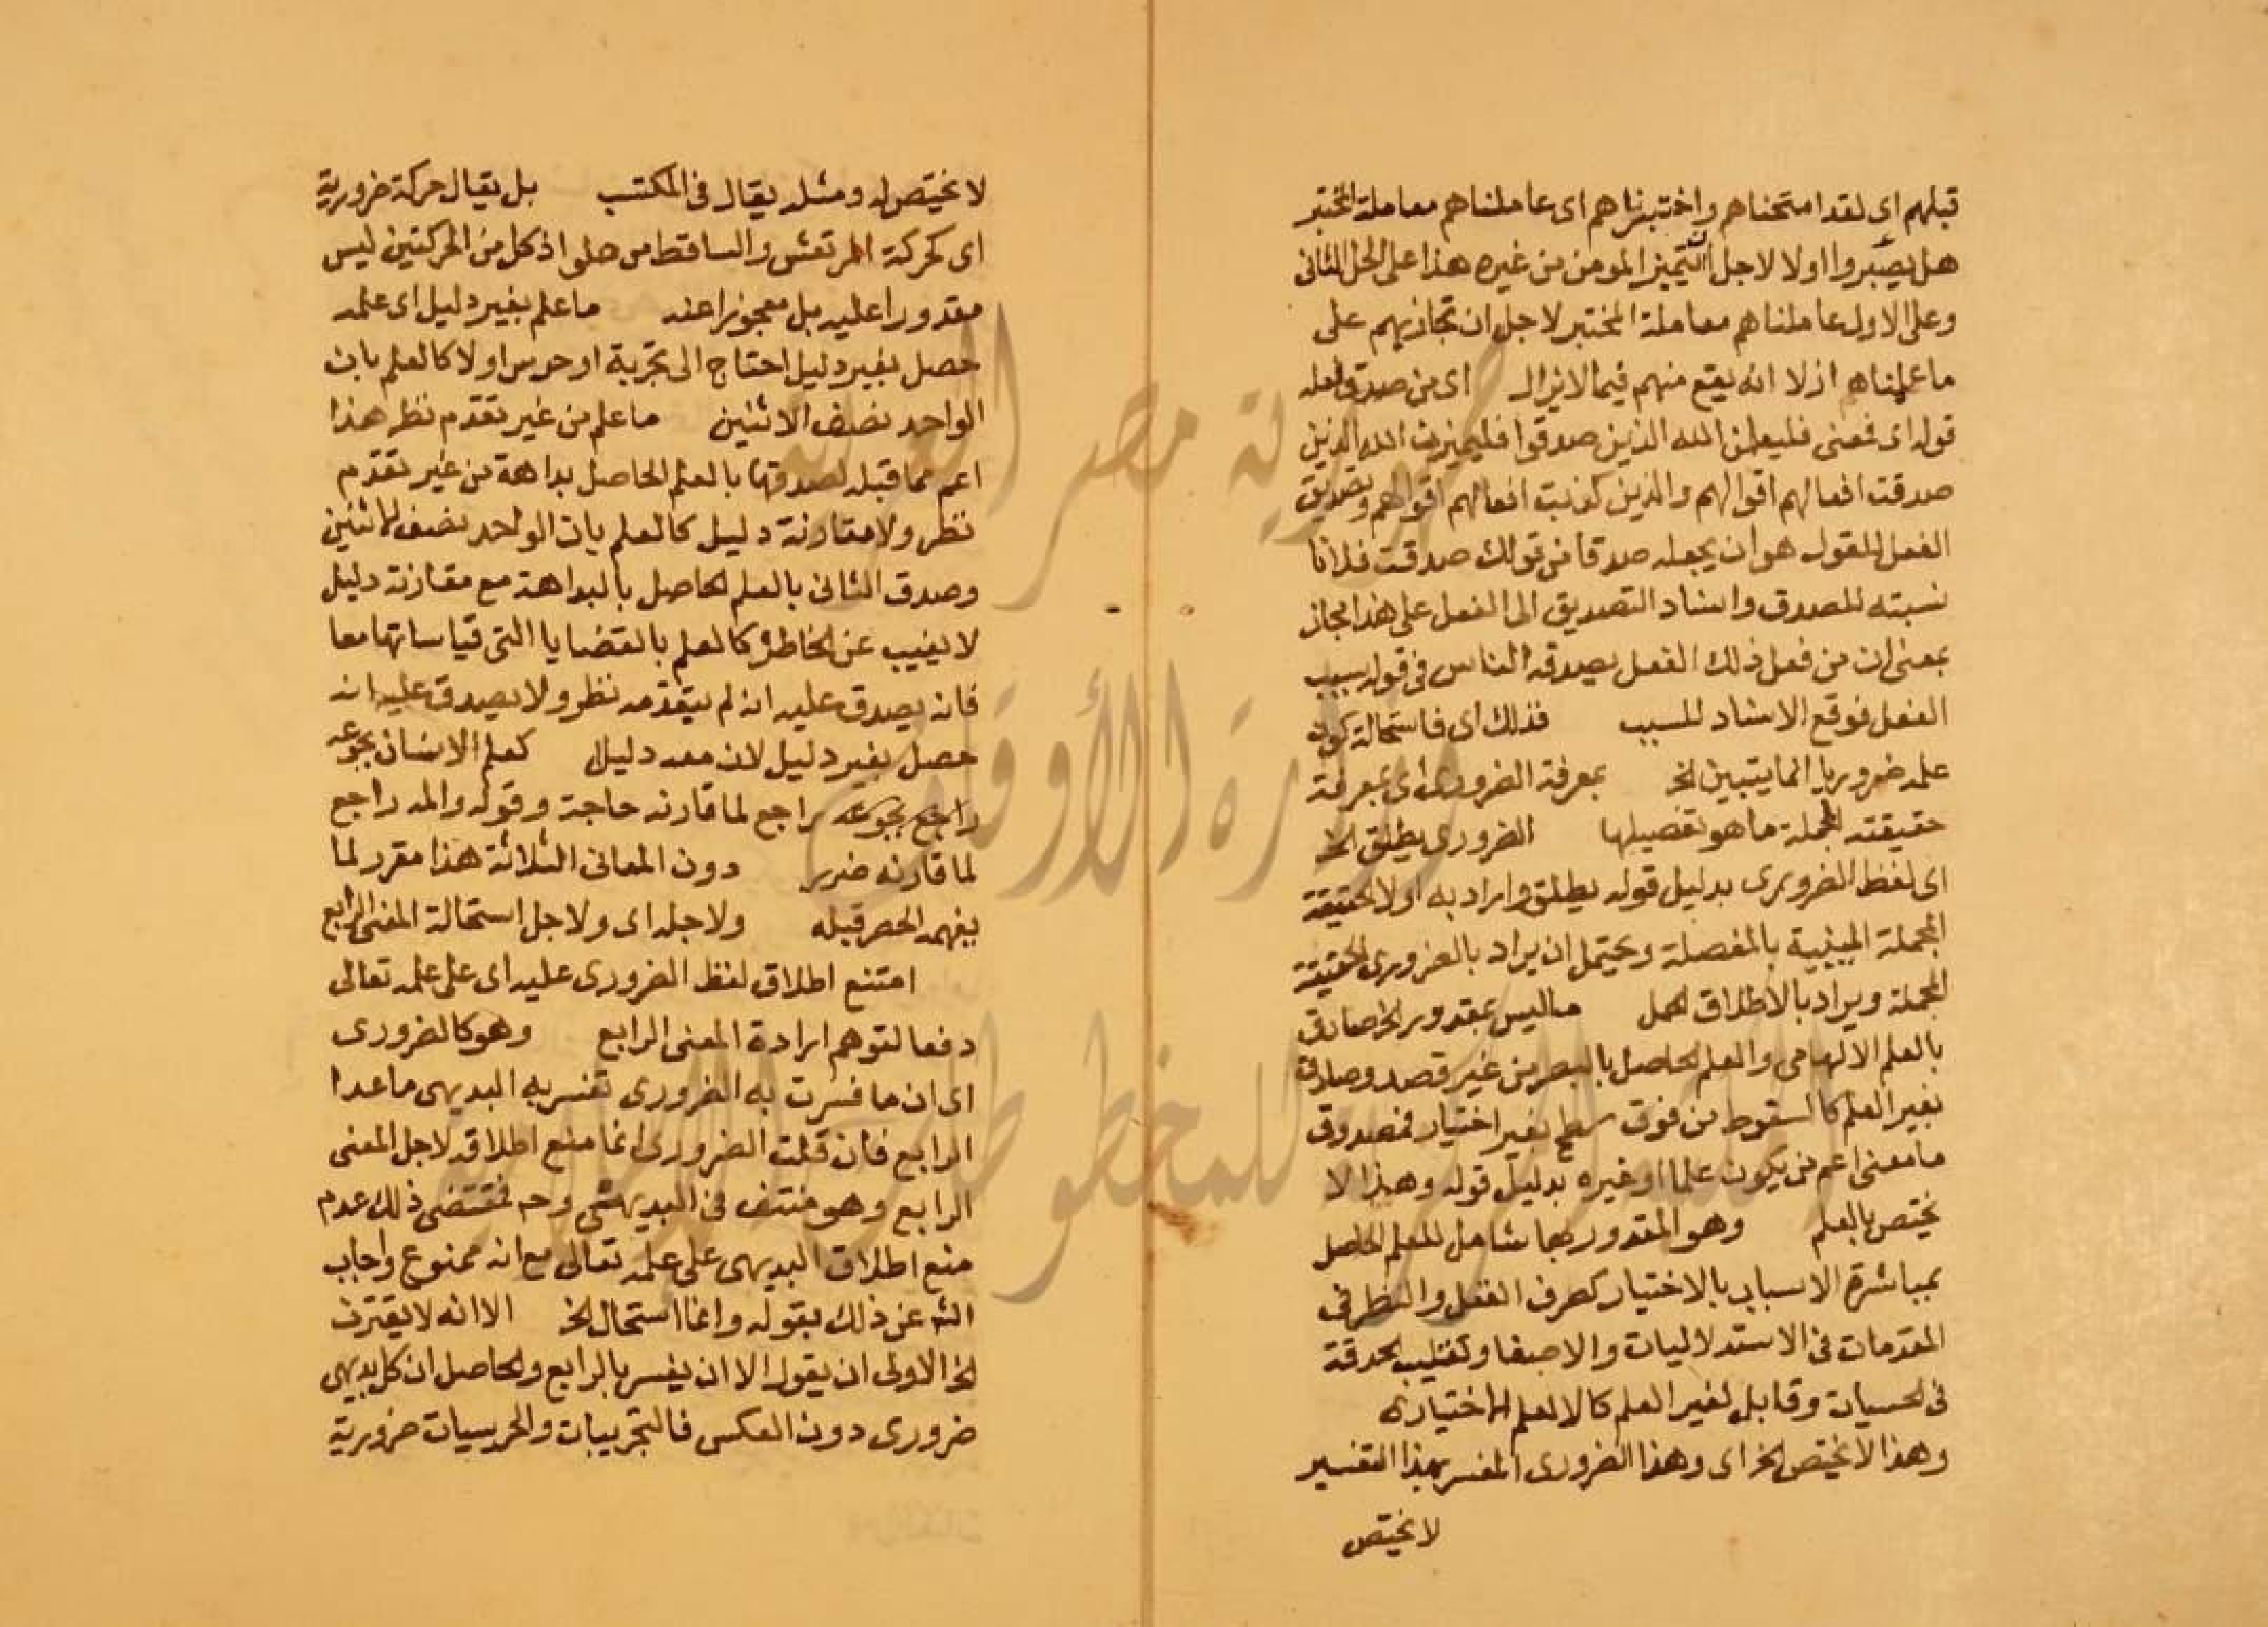 قبلهم اى لقد امتحناهم واختبرناهم اى عاملناهم معاملة المختبر
هل يصبروا اولا لاجل ان يتميز المومن من غيره هذا على الحل الثانى
وعلى الاول عاملناهم معاملة المختبر لاجل ان نجازيهم على
ما علمناهم ازلا انه يقع منهم فيما لا يزال اى من صدق فعله
قوله اى فمعنى فليعلمن الله الذين صدقوا فليميزن الله الذين
صدقت افعالهم اقوالهم والذين كذبت افعالهم اقوالهم وتصديق
الفعل للقول هو ان يجعله صدقا من قولك صدقت فلانا
نسبته للصدق واسناد التصديق الى الفعل على هذا مجاز
بمعنى ان من فعل ذلك الفعل يصدقه الناس فى قوله بسبب
الفعل فوقع الاسناد للسبب فذلك اى فاستحالة كون
علمه ضروريا انما يتبين الخ بمعرفة الضرورى اى بمعرفة
حقيقته المجملة ما هو تفصيلها الضرورى يطلق الخ
اى لفظ الضرورى بدليل قوله يطلق واراد به اولا الحقيقة
المجملة المبينية بالمفصلة ويحتمل ان يراد بالضرورى الحقيقة
المجملة ويراد بالاطلاق الحمل ما ليس بمقدور الخ صادق
بالعلم الالهامى والعلم الحاصل بالبصر من غير قصد وصادق
بغير العلم كالسقوط من فوق سطح بغير اختيار فمصدوق
ما معنى اعم من يكون علما او غيره بدليل قوله وهذا لا
يختص بالعلم وهو المقدور بها شامل للعلم الحاصل
بمباشرة الاسباب بالاختيار كصرف العقل والنظر فى
المقدمات فى الاستدلاليات والاصغا وتقليب الحدقة
فى الحسيات وقابل لغير العلم كالالعلم الاختيارى
وهذا لا يختص الخ اى وهذا الضرورى المفسر بهذا التفسير
لا يختص
لا يختص له ومثله يقال فى المكتسب بل يقال حركة ضرورية
اى كحركة المرتعش والساقط من علو اذ كل من الحركتين ليس
مقدورا عليه بل معجوزا عنه ما علم بغير دليل اى علمه
حصل بغير دليل احتاج الى تجربة او حدس اولا كالعلم بان
الواحد نصف الاثنين ما علم من غير تقدم نظر هذا
اعم مما قبله لصدقها بالعلم الحاصل بداهة من غير تقدم
نظر ولا مقارنة دليل كالعلم بان الواحد نصف الاثنين
وصدق الثانى بالعلم الحاصل بالبداهة مع مقارنة دليل
لا يغيب عن الخاطر كالعلم بالقضايا التى قياساتها معا
فانه يصدق عليه انه لم يتقدمه نظر ولا يصدق عليه انه
حصل بغير دليل لان معه دليل كعلم الانسان بجوعه
راجع بجوعه راجع لما قارنه حاجة وقوله والمه راجع
لما قارنه ضرر دون المعانى الثلاثة هذا مقرر لما
يفهمه الحصر قبله ولاجله اى ولاجل استحالة المعنى الرابع
امتنع اطلاق لفظ الضرورى عليه اى على علمه تعالى
دفعا لتوهم ارادة المعنى الرابع وهو كالضرورى
اى ان ما فسرت به الضرورى تفسر به البديهى ما عدا
الرابع فان قلت الضرورى انما منع اطلاقه لاجل المعنى
الرابع وهو منتف فى البديهى وح فمقتضى ذلك عدم
منع اطلاق البديهى على علمه تعالى مع انه ممنوع واجاب
الش عن ذلك بقوله وانما استحال الخ الا انه لا يقترن
الخ الاولى ان يقول الا ان يفسر بالرابع والحاصل ان كل بديهى
ضرورى دون العكس فالتجريبات والحدسيات ضرورية